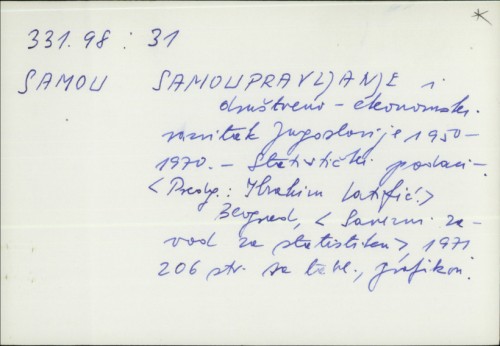 331.98 : 31
SAMOU SAMOUPRAVLJANJE i
društveno-ekonomski
razvitak Jugoslavije 1950-
1970. - Statistički podaci.
<Predg.: Ibrahim Latifić.>
Beograd, <Savezni za-
vod za statistiku>, 1971
206 str. sa tabl., grafikoni.